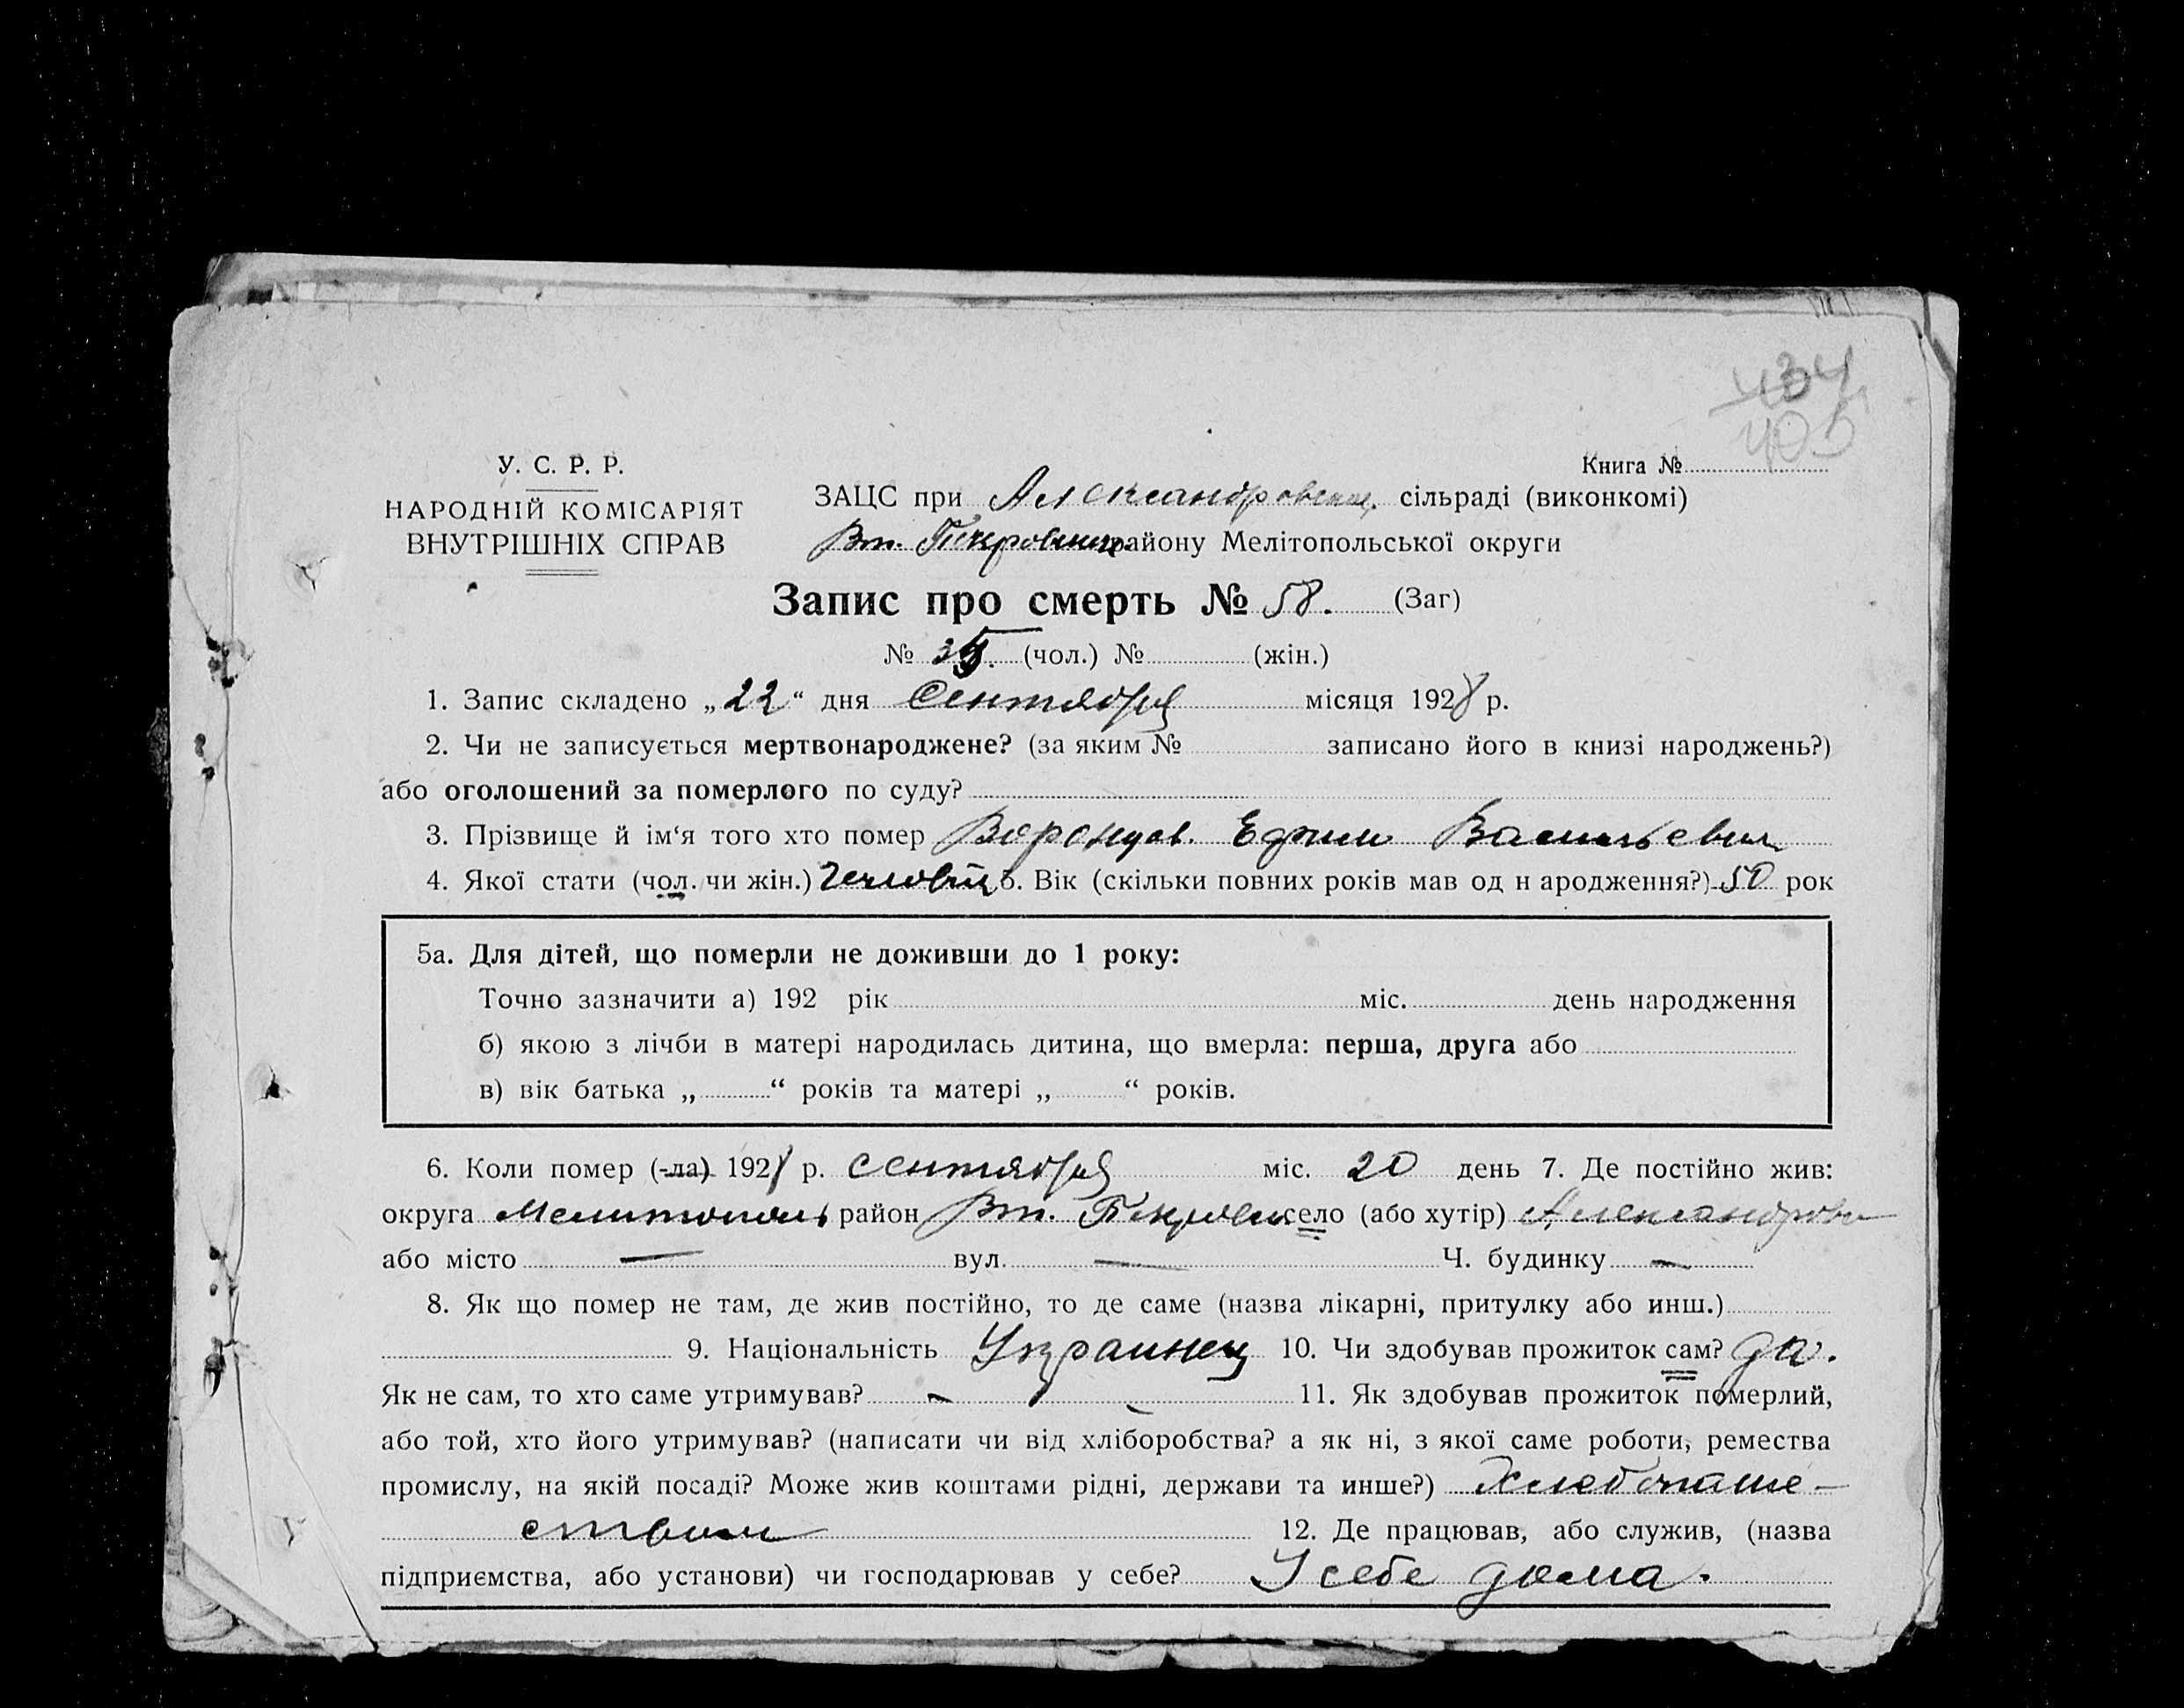 434
405
У. С. Р. Р.
НАРОДНІЙ КОМІСАРІЯТ
ВНУТРІШНІХ СПРАВ
Книга №
ЗАЦС при Александровськ. сільраді (виконкомі)
Вт. Покровськ. району Мелітопольської округи
Запис про смерть № 58. (Заг)
№ 35. (чол.) № (жін.)
1. Запис складено „22“ дня Сентября місяця 1928 р.
2. Чи не записується мертвонароджене? (за яким № записано його в книзі народжень?)
або оголошений за померлого по суду?
3. Прізвище й ім‘я того хто помер Воронцов. Ефим Васильевич
4. Якої стати (чол. чи жін.) Чоловік 5. Вік (скільки повних років мав од н ародження?) 50 рок
5а. Для дітей, що померли не доживши до 1 року:
Точно зазначити а) 192 рік міс. день народження
б) якою з лічби в матері народилась дитина, що вмерла: перша, друга або
в) вік батька „ “ років та матері „ “ років.
6. Коли помер (-ла) 1928 р. сентября міс. 20 день 7. Де постійно жив:
округа Мелитополь район Вт. Покровськ село (або хутір) Александровк
або місто — вул. — Ч. будинку —
8. Як що помер не там, де жив постійно, то де саме (назва лікарні, притулку або инш.)
9. Національність Украинец 10. Чи здобував прожиток сам? да.
Як не сам, то хто саме утримував? — 11. Як здобував прожиток померлий,
або той, хто його утримував? (написати чи від хліборобства? а як ні, з якої саме роботи, ремества
промислу, на якій посаді? Може жив коштами рідні, держави та инше?) Хлебопаше-
ством 12. Де працював, або служив, (назва
підприємства, або установи) чи господарював у себе? У себе дома.